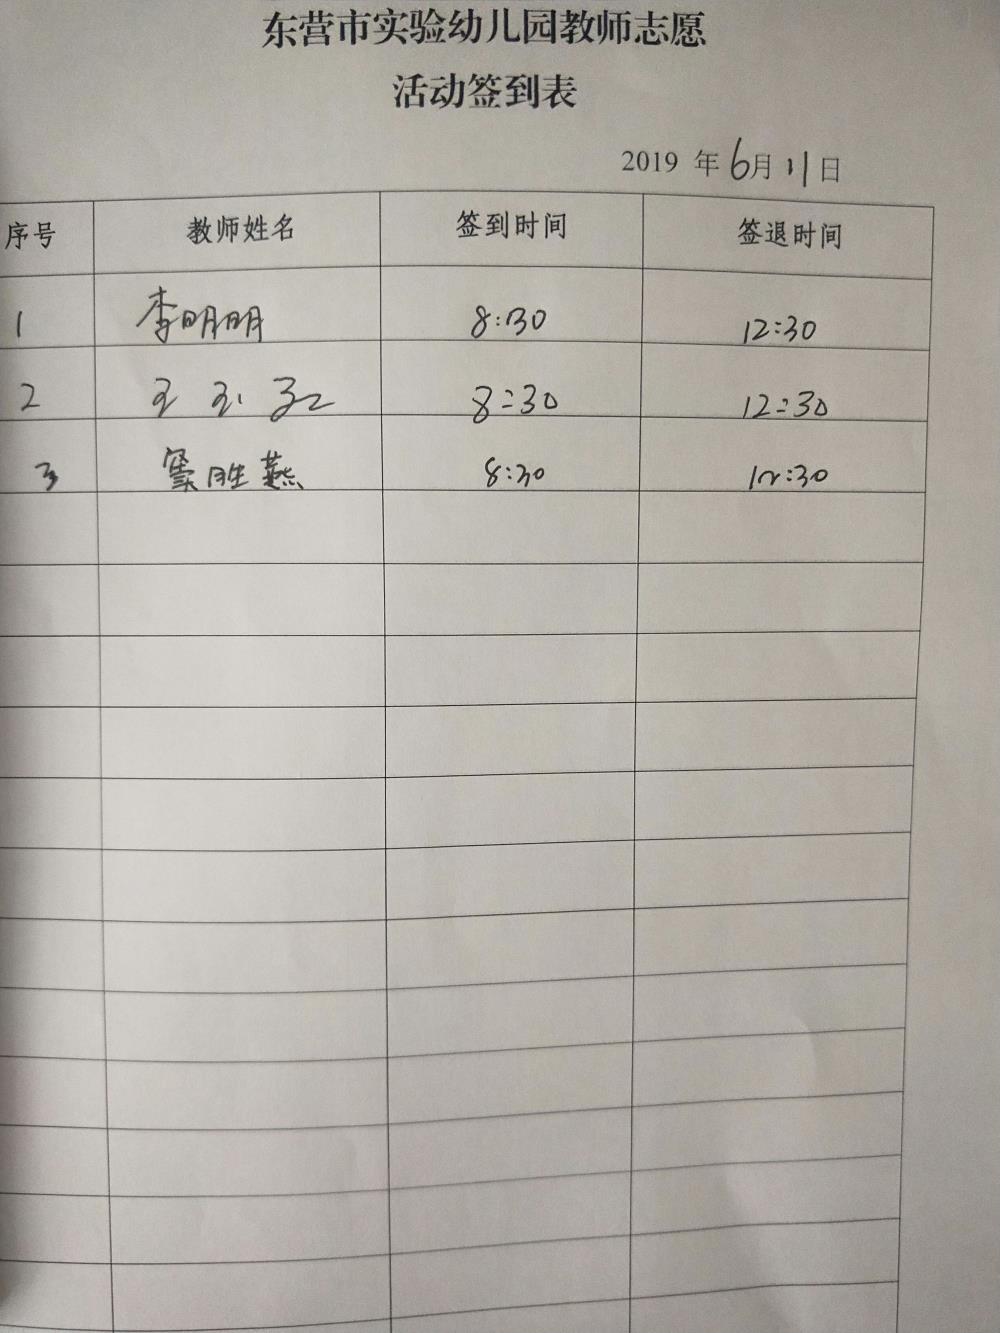 东营市实验幼儿园教师志愿
活动签到表
2019 年 6月 11日
序号 教师姓名 签到时间 签退时间
1 李明明 8:30 12:30
2 王玉红 8:30 12:30
3 窦胜燕 8:30 12:30